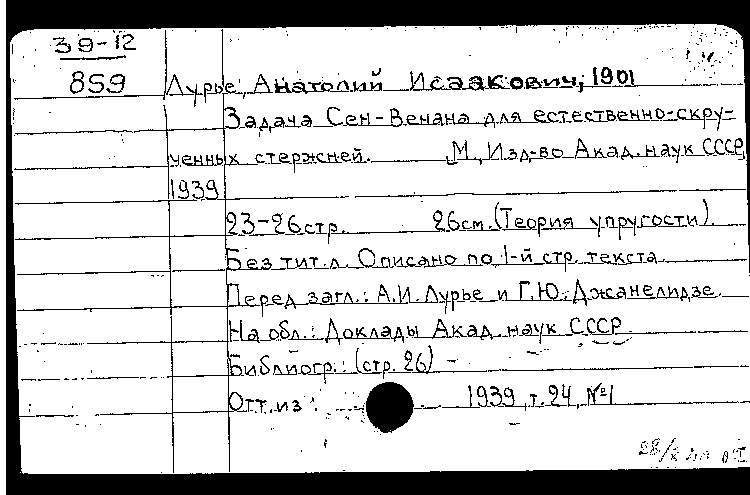 39-12
859
Лурье, Анатолий Исаакович, 1901
Задача Сен-Венана для естественно-скру-
ченных стержней. М., Изд-во Акад. наук СССР,
1939
23-26 стр. 26 см. (Теория упругости).
Без тит. л. Описано по 1-й стр. текста.
Перед загл.: А.И. Лурье и Г.Ю. Джанелидзе.
На обл.: Доклады Акад. наук СССР
Библиогр.: (стр. 26) -
Отт. из: 1939, т. 24, №1
28/X